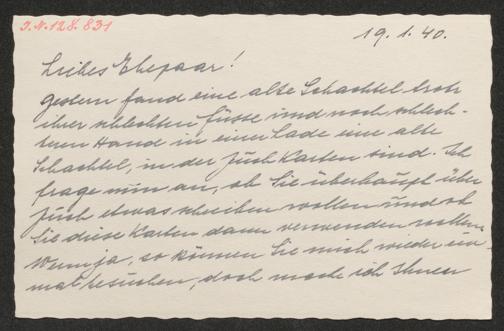 J.N. 128.831
19.1.40.
Liebes Ehepaar!
gestern fand eine alte Schachtel trotz
ihrer schlechten Füsse und noch schlech-
teren Hand in einer Lade eine alte
Schachtel, in der Karten sind. Ich
frage nun an, ob Sie überhaupt über
etwas schreiben wollen und ob
Sie diese Karten dann verwenden wollen.
Wenn ja, so können Sie mich wieder ein-
mal besuchen, doch mache ich Ihnen